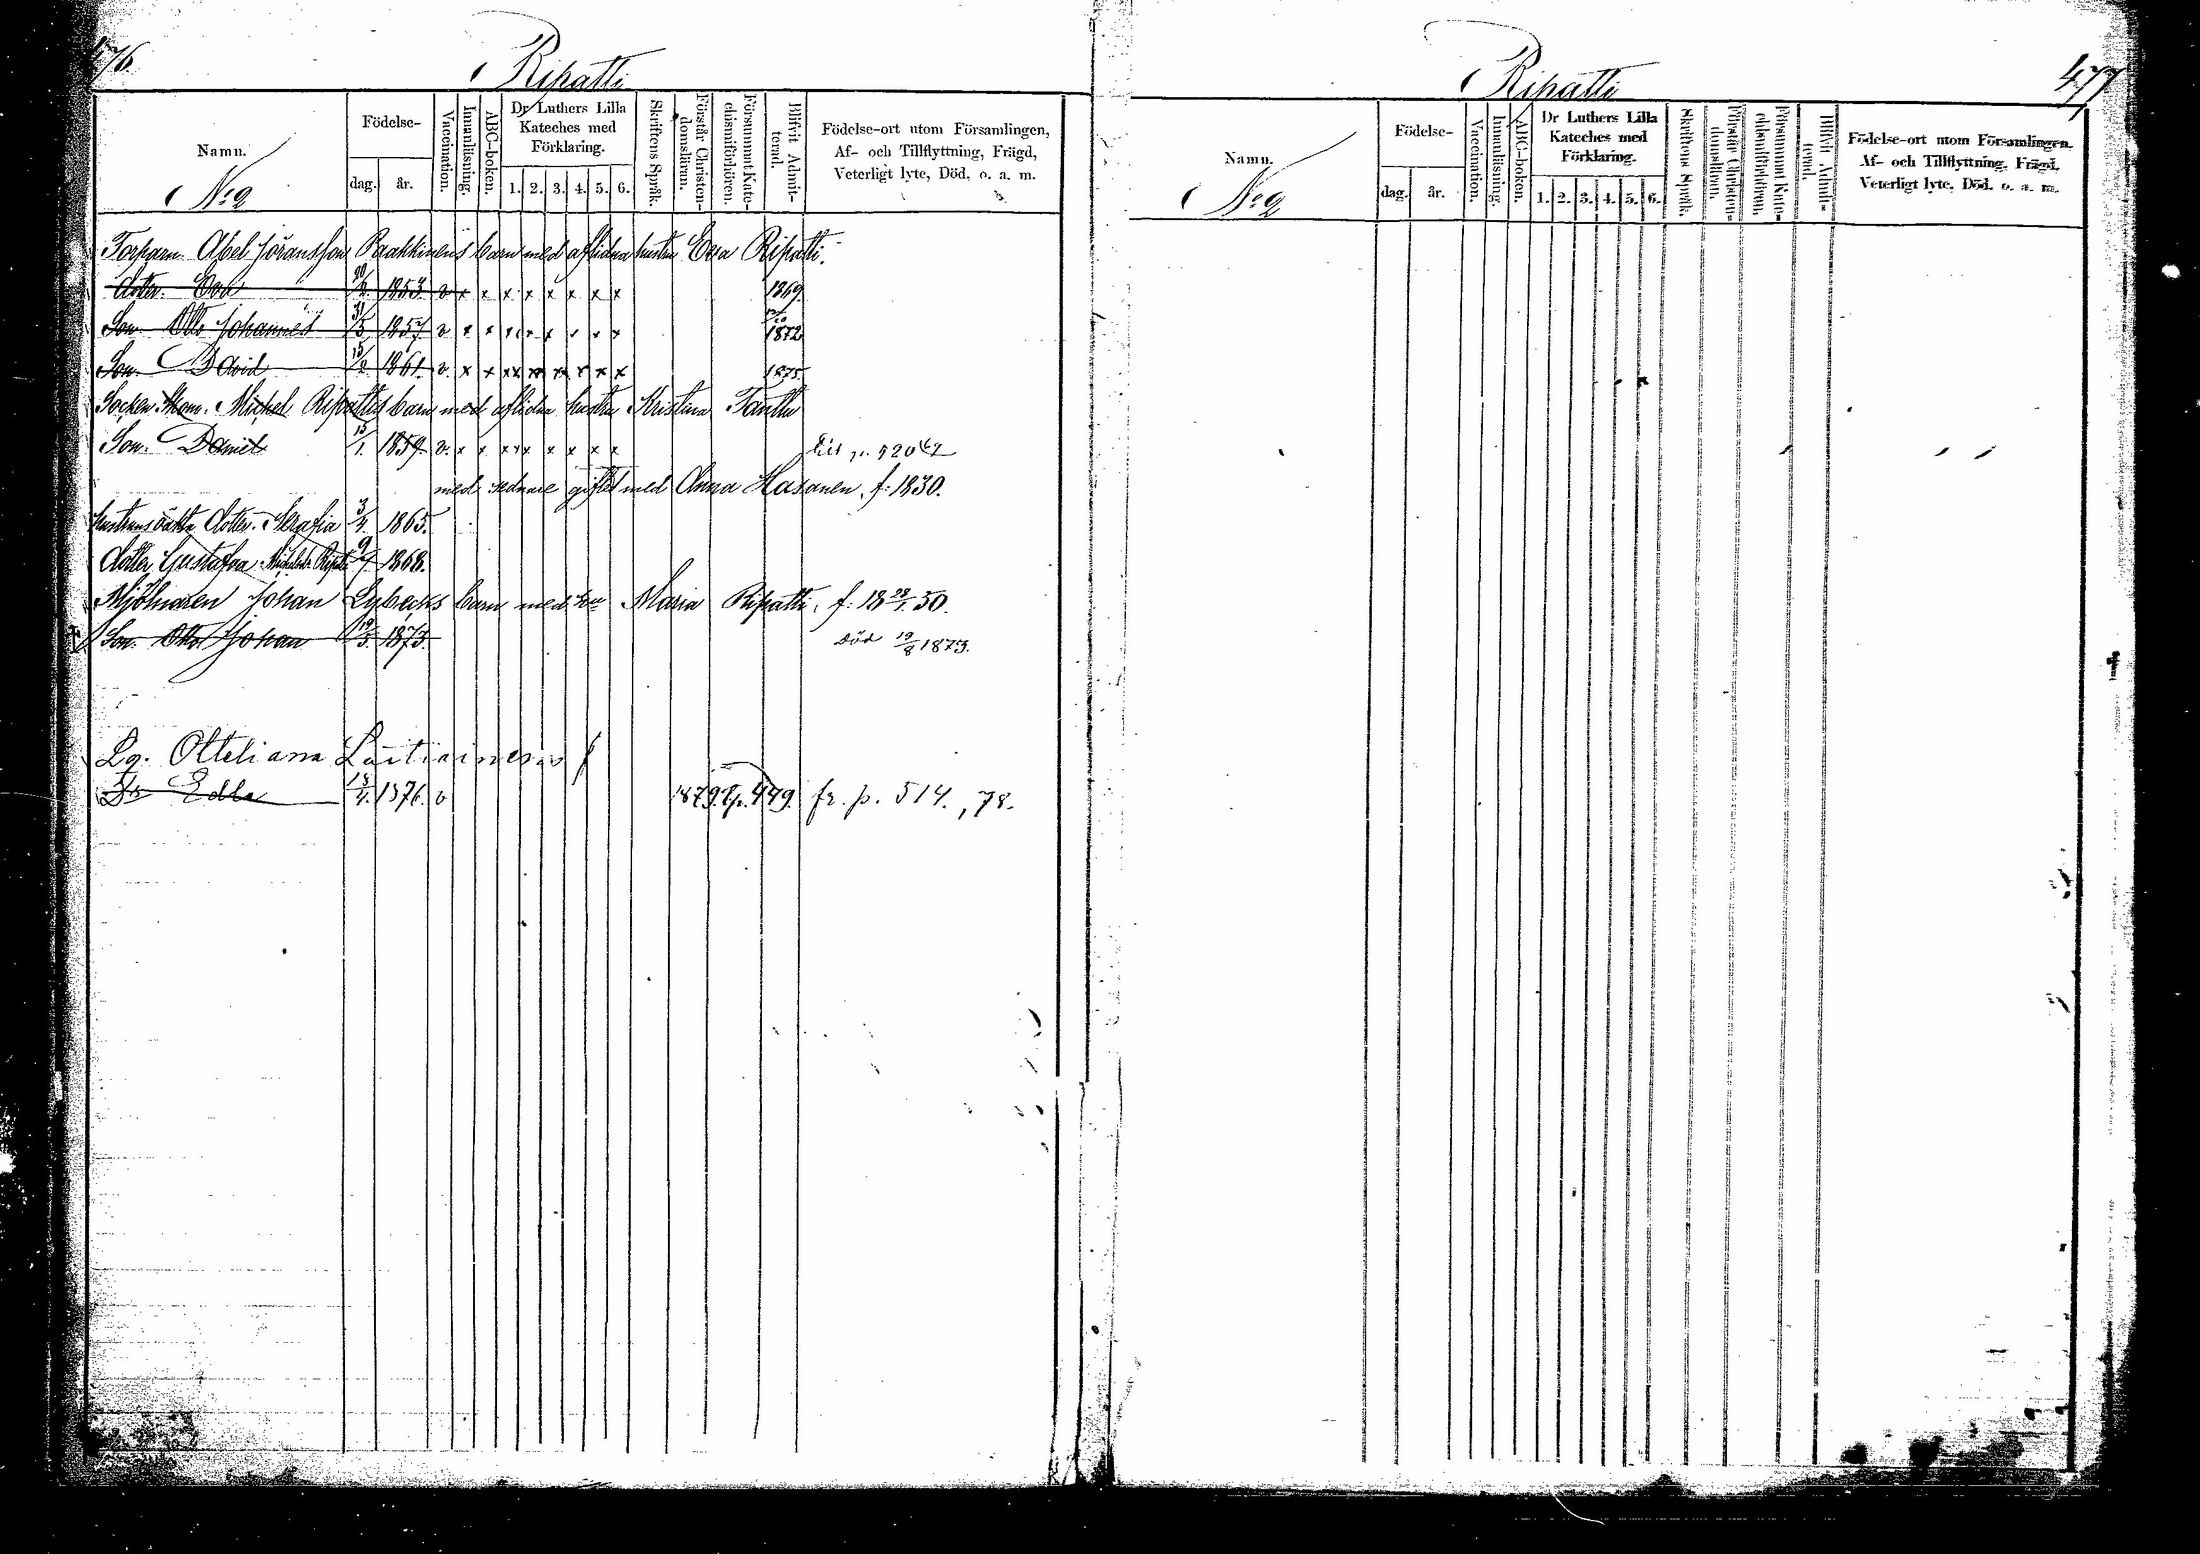 476
Ripatti
Namn.
No 2
Födelse-
dag. år.
Vaccination.
Innanläsning.
ABC-boken.
Dr Luthers Lilla Kateches med Förklaring.
1. 2. 3. 4. 5. 6.
Skriftens Språk.
Förstår Christendomsläran.
Försummat Katechismiförhören.
Blifvit Admitterad.
Födelse-ort utom Församlingen,
Af- och Tillflyttning, Frägd,
Veterligt lyte, Död, o. a. m.
Torparn. Abel Göransson Paakkinens barn med aflidna hustru Eva Ripatti.
dotter. Eva 20/2 1853 v x x x x x x x x 1869.
Son. Otto Johannes 31/5 1857. v x x x x x x x x 1872
Son. David 15/2 1861. v. x x xx xx xx x x x 1875
Socken Skom. Michel Ripattis barn med aflidna hustru Kristina Tanttu
Son. Daniel 15/1. 1859. v. x x xx x x x x x
med sednare giftet med Anna Hasanen, f. 1830.
hustruns oäkta dotter. Serafia 3/4. 1865.
dotter Gustafva 9/7 1868.
Mjölnaren Johan Lybecks barn med Maria Ripatti, f. 18 28/1 50.
Son. Otto Johan 19/5. 1873. död 19/8 1873.
Lg. Otteliana Laitiainens
Dr Edla 18/4. 1876. v 1879. Tp. 449. fr. p. 514. , 78.
477
Ripatti
Namn.
No 2
Födelse-
dag. år.
Vaccination.
Innanläsning.
ABC-boken.
Dr Luthers Lilla Kateches med Förklaring.
1. 2. 3. 4. 5. 6.
Skriftens Språk.
Förstår Christendomsläran.
Försummat Katechismiförhören.
Blifvit Admitterad.
Födelse-ort utom Församlingen,
Af- och Tillflyttning, Frägd,
Veterligt lyte, Död. o. a. m.